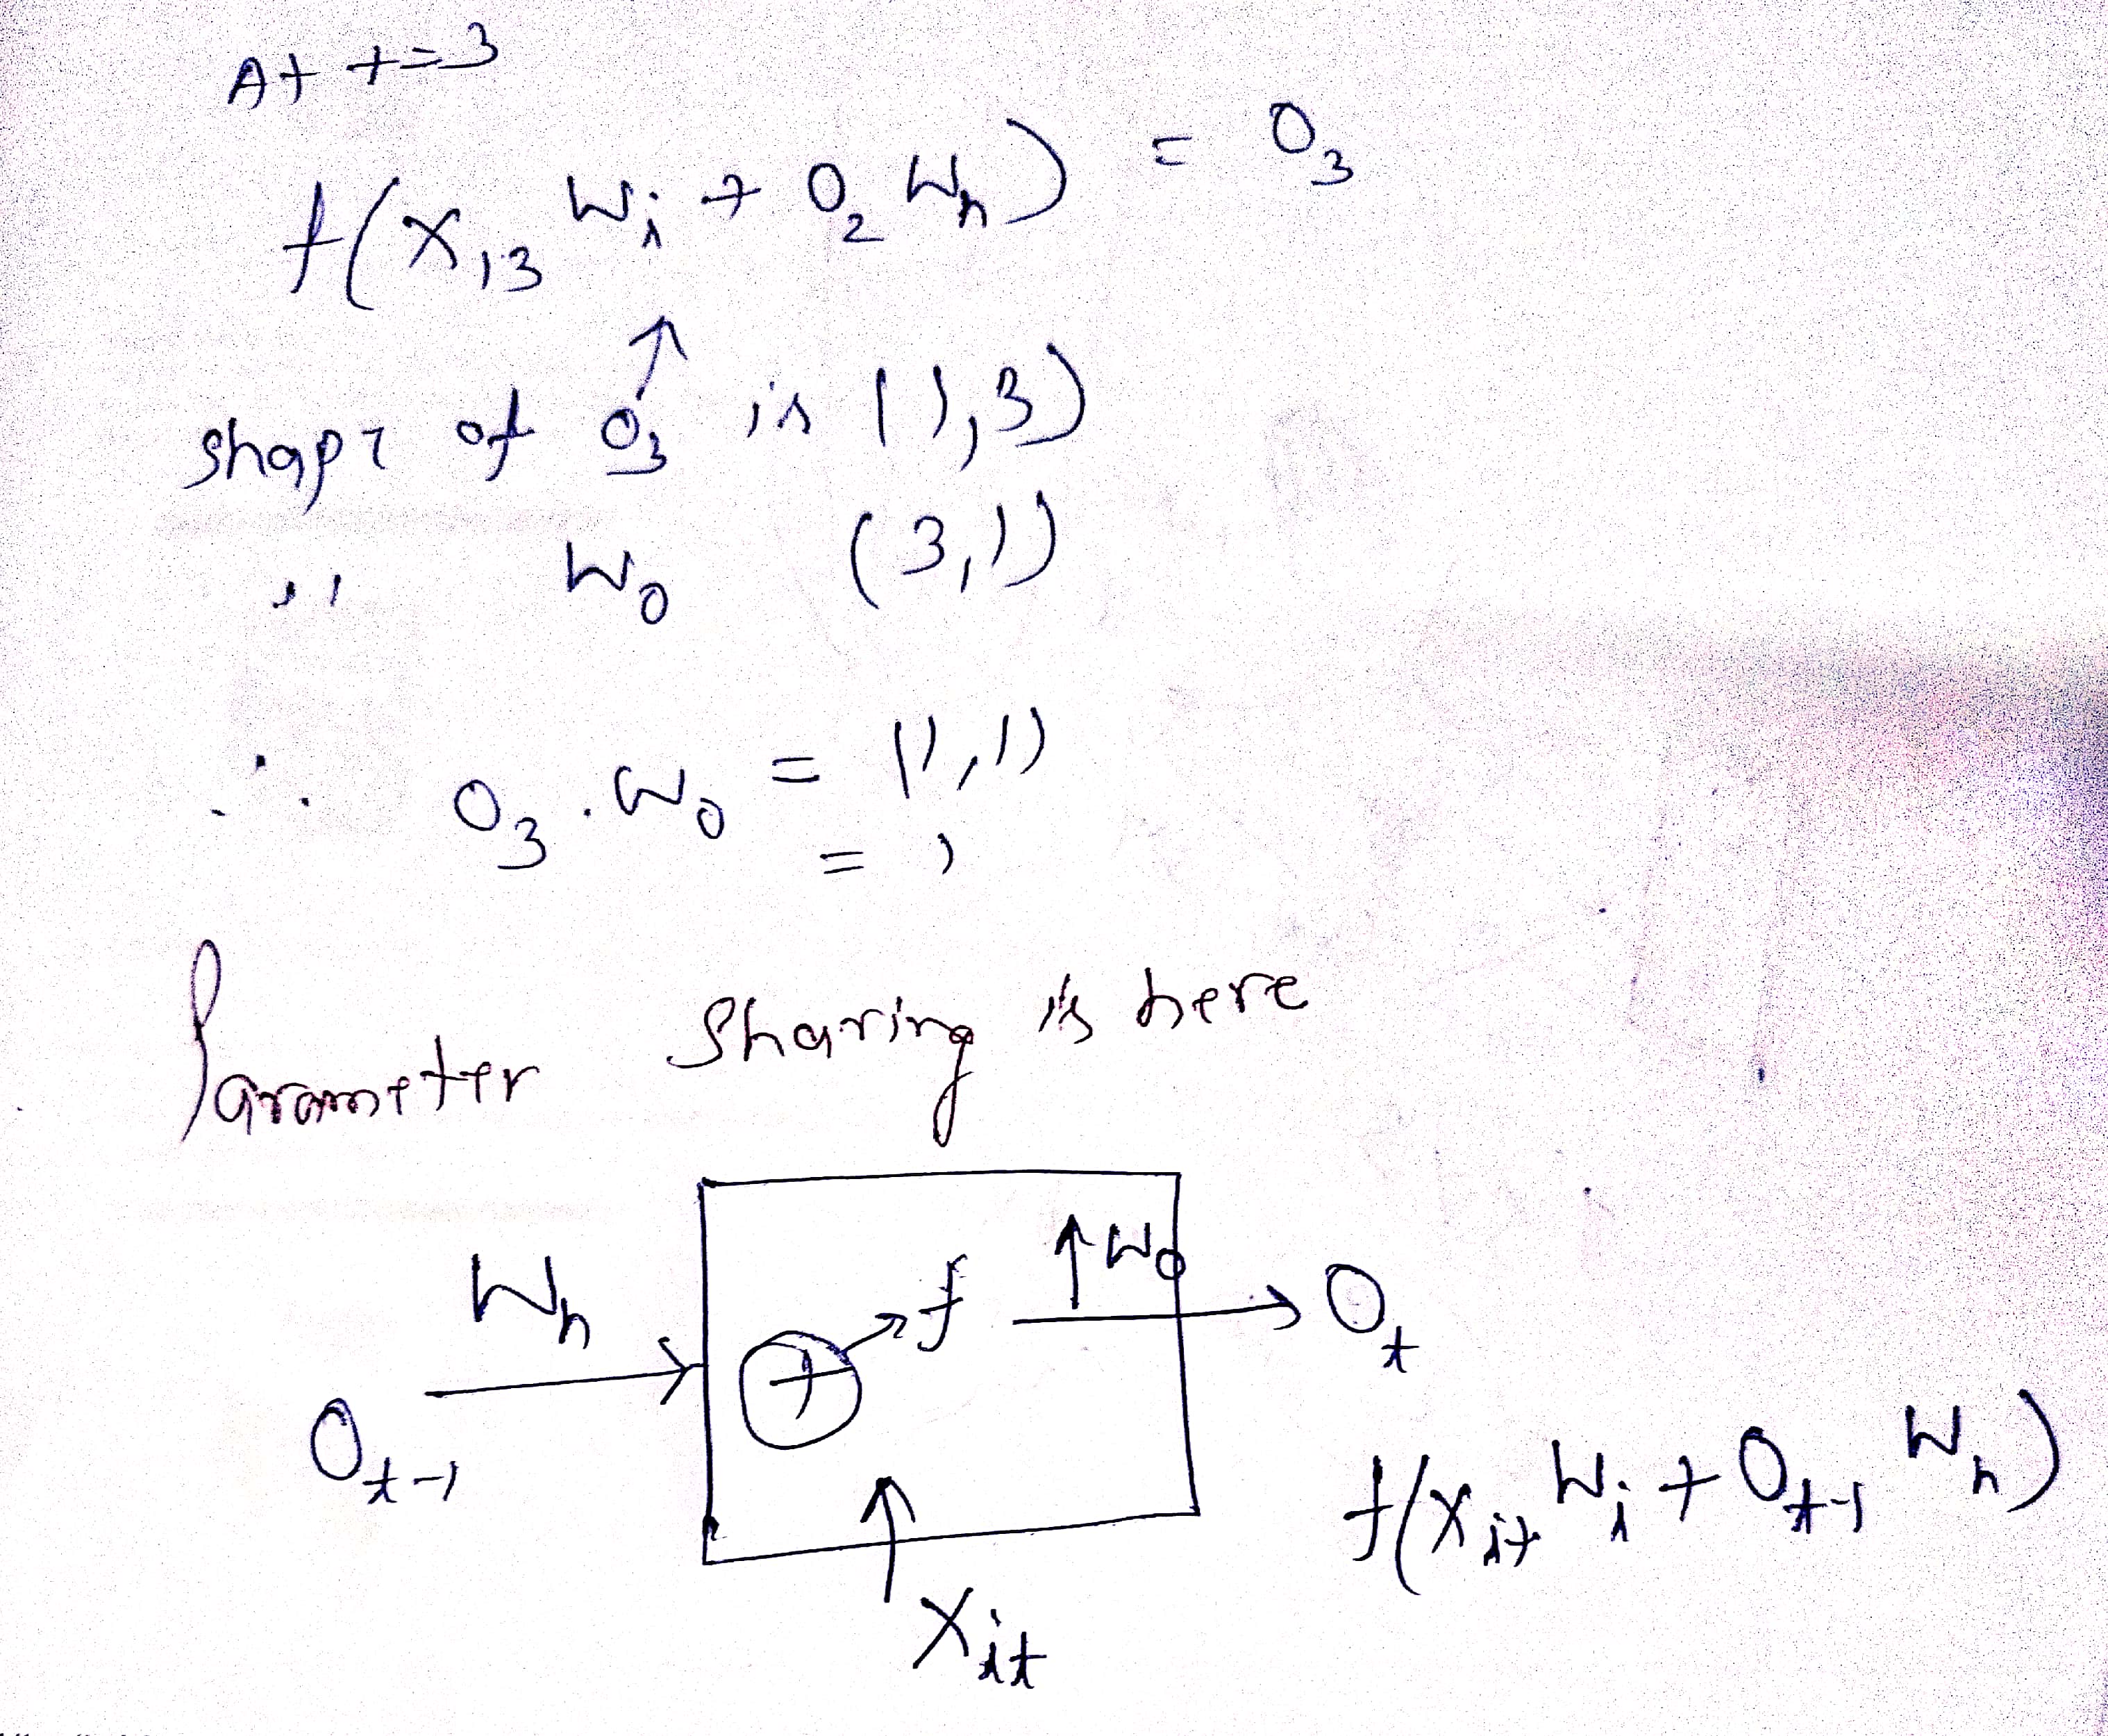 At t=3
f(X₁₃ Wᵢ + O₂ Wₕ) = O₃
↑
shape of O₃ is (1,3)
,, W₀ (3,1)
∴ O₃ . W₀ = (1,1)
= 1
Parameter Sharing is here
Wₕ ↑ W₀
+ → f → Oₜ
Oₜ₋₁
f(Xᵢₜ Wᵢ + Oₜ₋₁ Wₕ)
Xᵢₜ